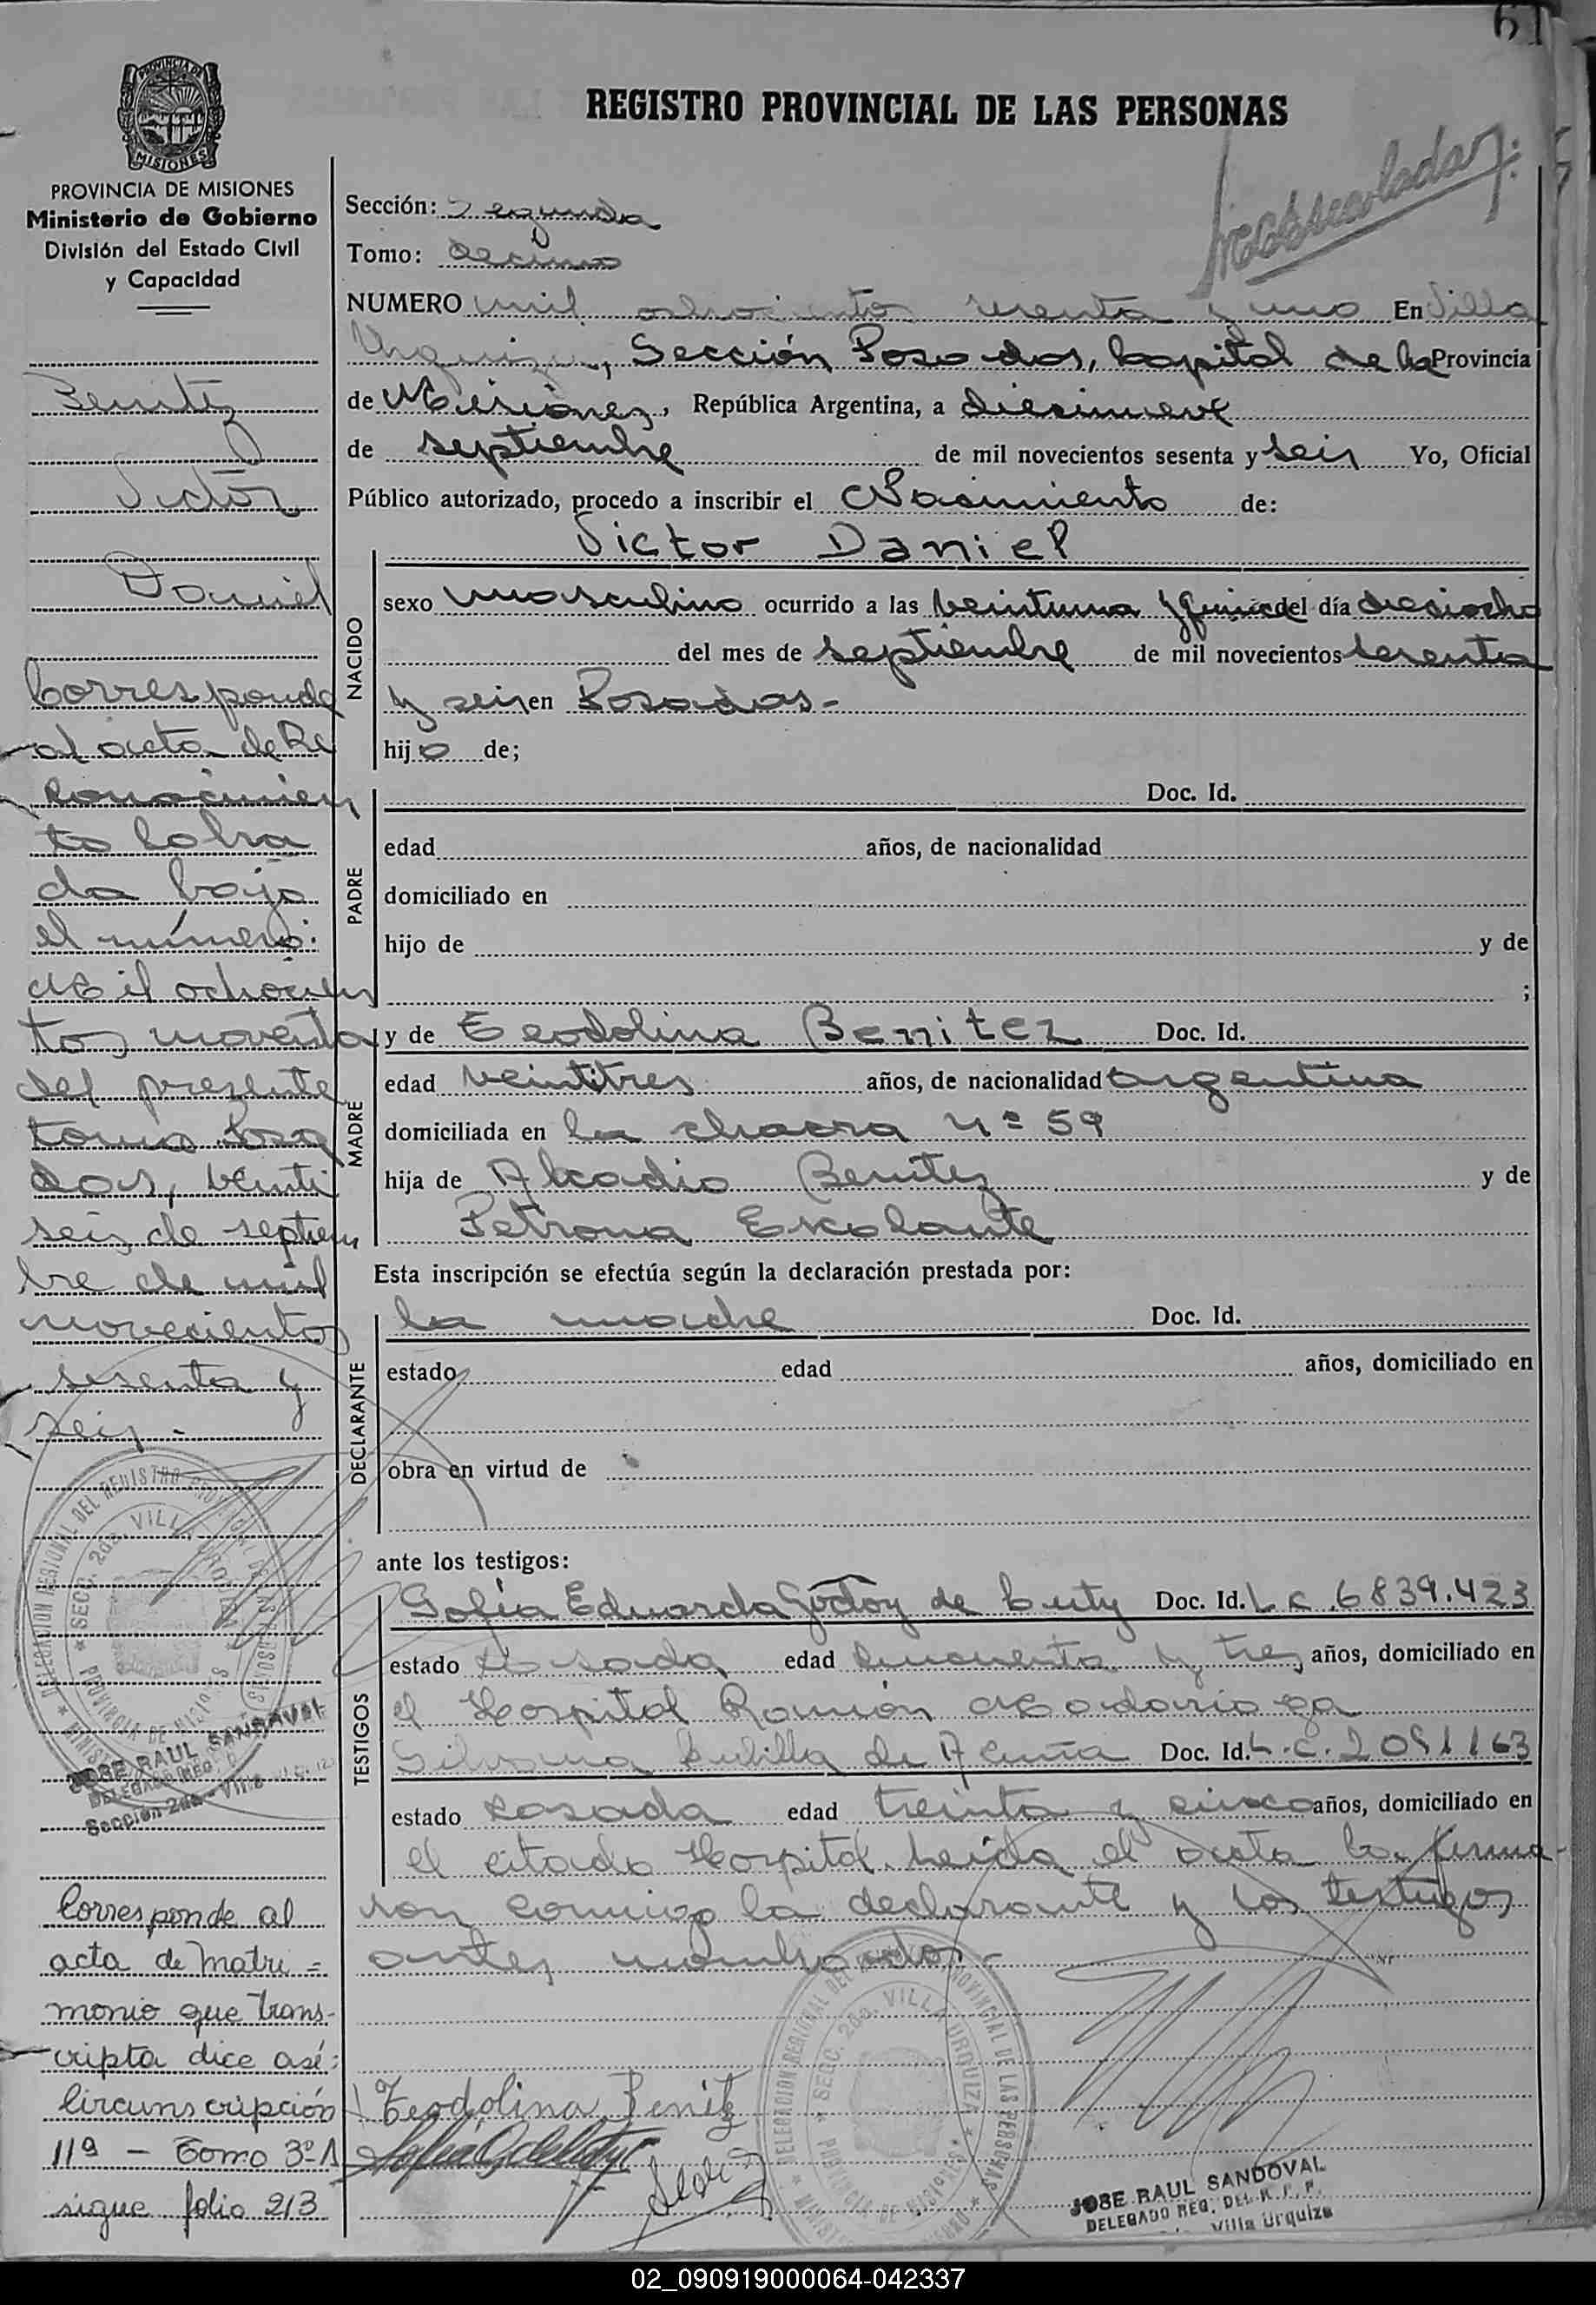 61
REGISTRO PROVINCIAL DE LAS PERSONAS
PROVINCIA DE MISIONES
Ministerio de Gobierno
División del Estado Civil
y Capacidad
Benitez
Victor
Daniel
Corresponde
al acta de Re
conocimien
to labra
da bajo
el número:
Mil ochocien
tos noventa
del presente
tomo Posa
das, veinti
seis de septiem
bre de mil
novecientos
sesenta y
seis.-
DELEGACION REGIONAL DEL REGISTRO PROVINCIAL DE LAS PERSONAS
SECC. 2da. VILLA URQUIZA
PROVINCIA DE MISIONES
JOSE RAUL SANDOVAL
DELEGADO REG.
Sección 2da - Villa
Corresponde al
acta de Matri=
monio que trans-
cripta dice así:
Circunscripción
11ª - Tomo 3º-A
sigue folio 213
Sección: Segunda
Tomo: décimo
NUMERO mil ochocientos sesenta y uno En Villa
Urquiza, Sección Posadas, Capital de la Provincia
de Misiones, República Argentina, a diesinueve
de septiembre de mil novecientos sesenta y seis Yo, Oficial
Público autorizado, procedo a inscribir el Nacimiento de:
Victor Daniel
NACIDO
sexo masculino ocurrido a las veintiuna y quince del día dieciocho
del mes de septiembre de mil novecientos sesenta
y seis en Posadas-
hijo de;
PADRE
Doc. Id.
edad años, de nacionalidad
domiciliado en
hijo de y de
;
MADRE
y de Teodolina Benitez Doc. Id.
edad veintitres años, de nacionalidad argentina
domiciliada en la chacra nº 59
hija de Alcadio Benitez y de
Petrona Escalante
Esta inscripción se efectúa según la declaración prestada por:
DECLARANTE
la madre Doc. Id.
estado edad años, domiciliado en
obra en virtud de
ante los testigos:
TESTIGOS
Sofía Eduarda Godoy de Doc. Id. L.C. 6839.423
estado casada edad cincuenta y tres años, domiciliado en
el Hospital Ramón Madariaga
Silvana de Acuña Doc. Id. L.C. 2091163
estado casada edad treinta y cinco años, domiciliado en
el citado Hospital. Leida el acta la firma-
ron conmigo la declarante y los testigos
antes nombrados.-
Teodolina Benitez
DELEGACION REGIONAL DEL REGISTRO PROVINCIAL DE LAS PERSONAS
SECC. 2da. VILLA URQUIZA
PROVINCIA DE MISIONES
JOSE RAUL SANDOVAL
DELEGADO REG. DEL R. P. P.
Villa Urquiza
02_090919000064-042337